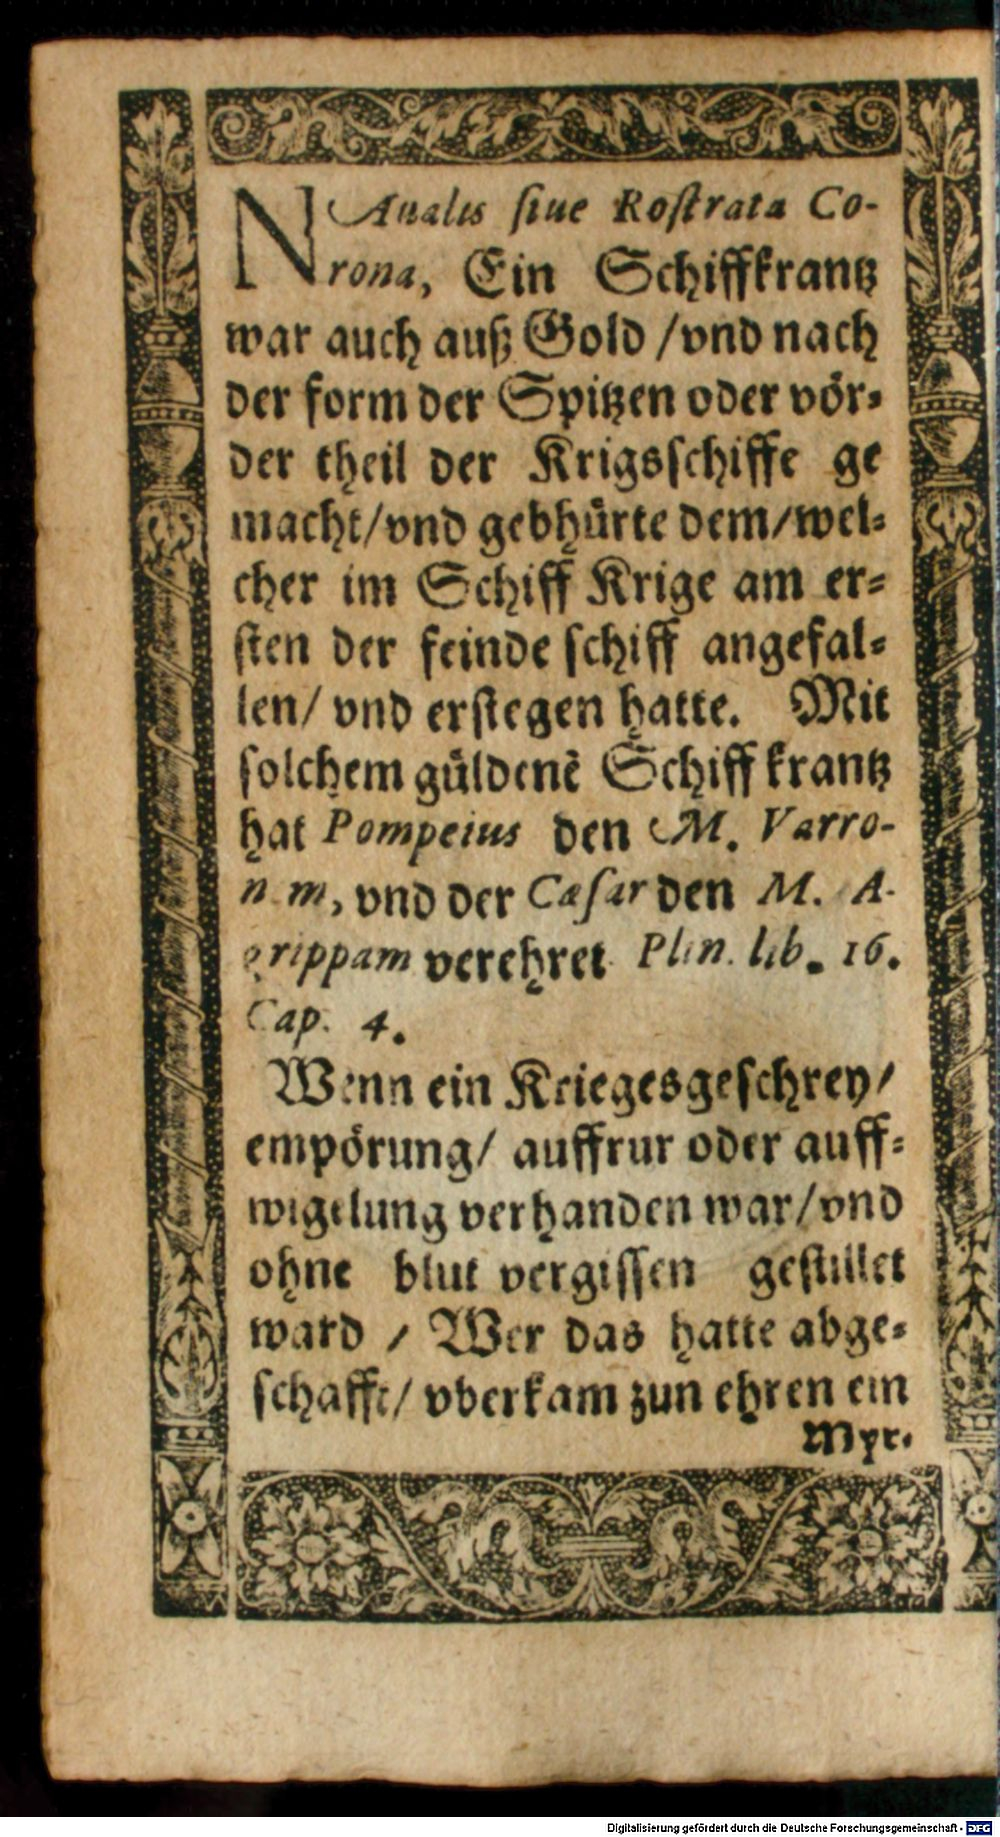 NAualis ſiue Roſtrata Co-
rona, Ein Schiffkrantz
war auch auß Gold /vnd nach
der form der Spitzen oder vör-
der theil der Krigsſchiffe ge
macht/vnd gebhürte dem/wel-
cher im Schiff Krige am er-
ſten der feinde ſchiff angefal-
len/ vnd erſtegen hatte. Mit
ſolchem güldenē Schiff krantz
hat Pompeius den M. Varro-
n m, vnd der Cæſar den M. A-
grippam verehret Plin. lib. 16.
Cap. 4.
Wenn ein Kriegesgeſchrey/
empörung/ auffrur oder auff-
wigelung verhanden war/vnd
ohne blut vergiſſen geſtillet
ward / Wer das hatte abge-
ſchafft/ vberkam zun ehren ein
Myr-
Digitalisierung gefördert durch die Deutsche Forschungsgemeinschaft - DFG